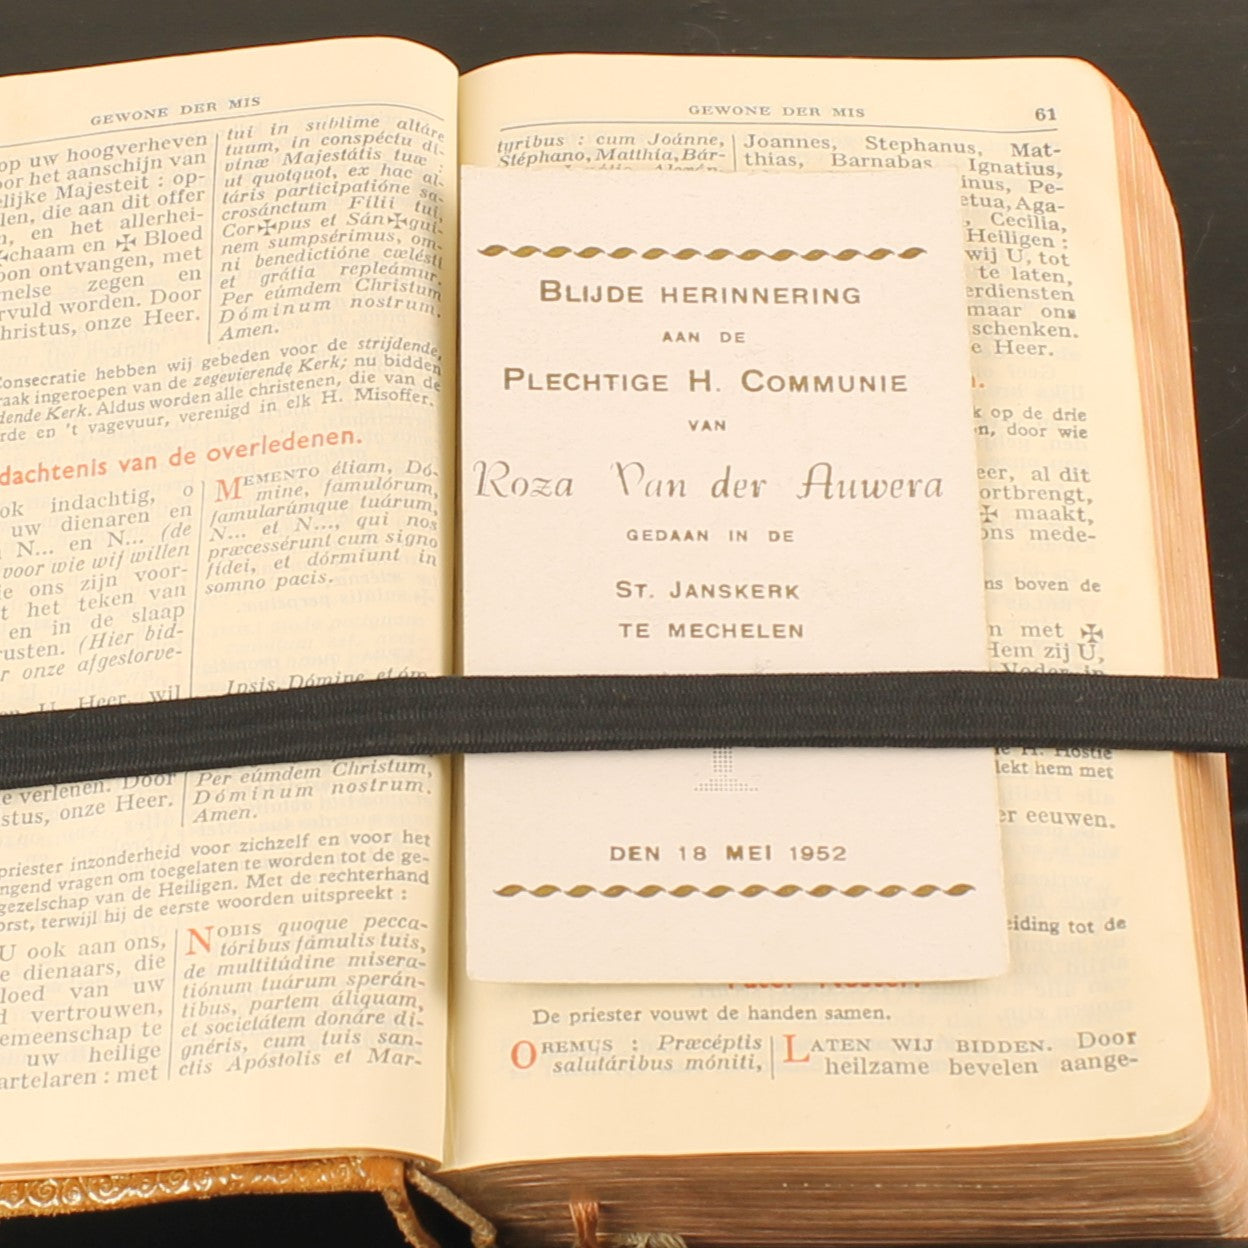 GEWONE DER MIS
op uw hoogverheven
het aanschijn van
Majesteit : op-
die aan dit offer
en het allerhei-
en ✠ Bloed
ontvangen, met
zegen en
worden. Door
onze Heer.
tui in sublime altáre
tuum, in conspéctu di-
vínæ Majestátis tuæ :
ut quotquot, ex hac al-
táris participatióne sa-
crosánctum Fílii tui,
Cor✠pus et Sán✠gui-
nem sumpsérimus, om-
ni benedictióne cælésti
et grátia repleámur.
Per eúmdem Christum
Dóminum nostrum.
Amen.
hebben wij gebeden voor de strijdende,
ingeroepen van de zegevierende Kerk; nu bidden
Kerk. Aldus worden alle christenen, die van de
en 't vagevuur, verenigd in elk H. Misoffer.
van de overledenen.
indachtig, o
uw dienaren en
N... en N... (de
voor wie wij willen
ons zijn voor-
het teken van
en in de slaap
(Hier bid-
onze afgestorve-
Heer, wil
MEMENTO étiam, Dó-
mine, famulórum,
famularúmque tuárum,
N... et N..., qui nos
præcessérunt cum signo
fídei, et dórmiunt in
somno pacis.
Ipsis, Dómine, et óm-
verlenen. Door
onze Heer.
Per eúmdem Christum,
Dóminum nostrum.
Amen.
priester inzonderheid voor zichzelf en voor het
vragen om toegelaten te worden tot de ge-
gezelschap van de Heiligen. Met de rechterhand
terwijl hij de eerste woorden uitspreekt :
U ook aan ons,
dienaars, die
van uw
vertrouwen,
te
uw heilige
met
NOBIS quoque pecca-
tóribus fámulis tuis,
de multitúdine misera-
tiónum tuárum sperán-
tibus, partem áliquam,
et societátem donáre di-
gnéris, cum tuis san-
ctis Apóstolis et Mar-
GEWONE DER MIS 61
tyribus : cum Joánne,
Stéphano, Matthía, Bár-
Joannes, Stephanus, Mat-
thias, Barnabas, Ignatius,
Pe-
Aga-
Cecilia,
Heiligen :
wij U, tot
te laten,
maar ons
schenken.
Heer.
BLIJDE HERINNERING
AAN DE
PLECHTIGE H. COMMUNIE
VAN
Roza Van der Auwera
GEDAAN IN DE
ST. JANSKERK
TE MECHELEN
DEN 18 MEI 1952
op de drie
door wie
al dit
✠ maakt,
ons mede-
boven de
met ✠
Hem zij U,
H. Hostie
hem met
eeuwen.
tot de
Pater Noster.
De priester vouwt de handen samen.
OREMUS : Præcéptis
salutáribus móniti,
LATEN WIJ BIDDEN. Door
heilzame bevelen aange-